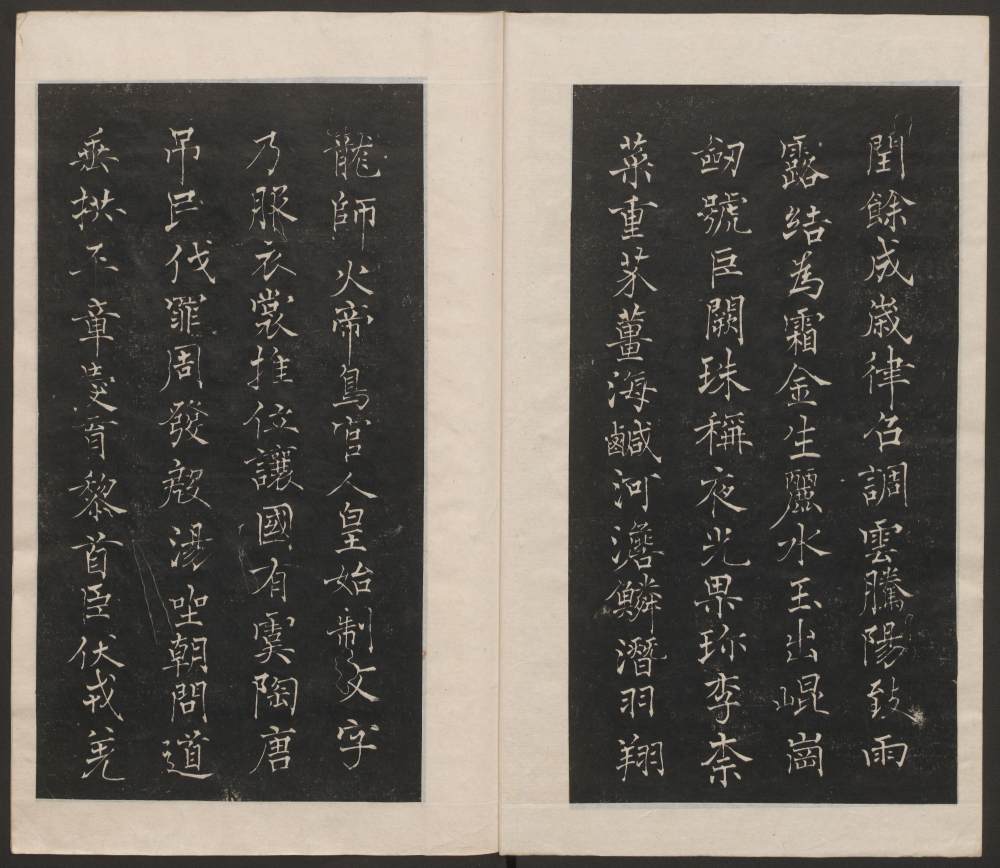 閏餘成歲律召調雲騰陽致雨
露結為霜金生麗水玉出崐崗
劔號巨闕珠稱夜光果珎李柰
菜重芥薑海鹹河澹鱗潛羽翔
龍師火帝鳥官人皇始制文字
乃服衣裳推位讓國有虞陶唐
吊民伐罪周發殷湯坐朝問道
垂拱平章愛育黎首臣伏戎羌